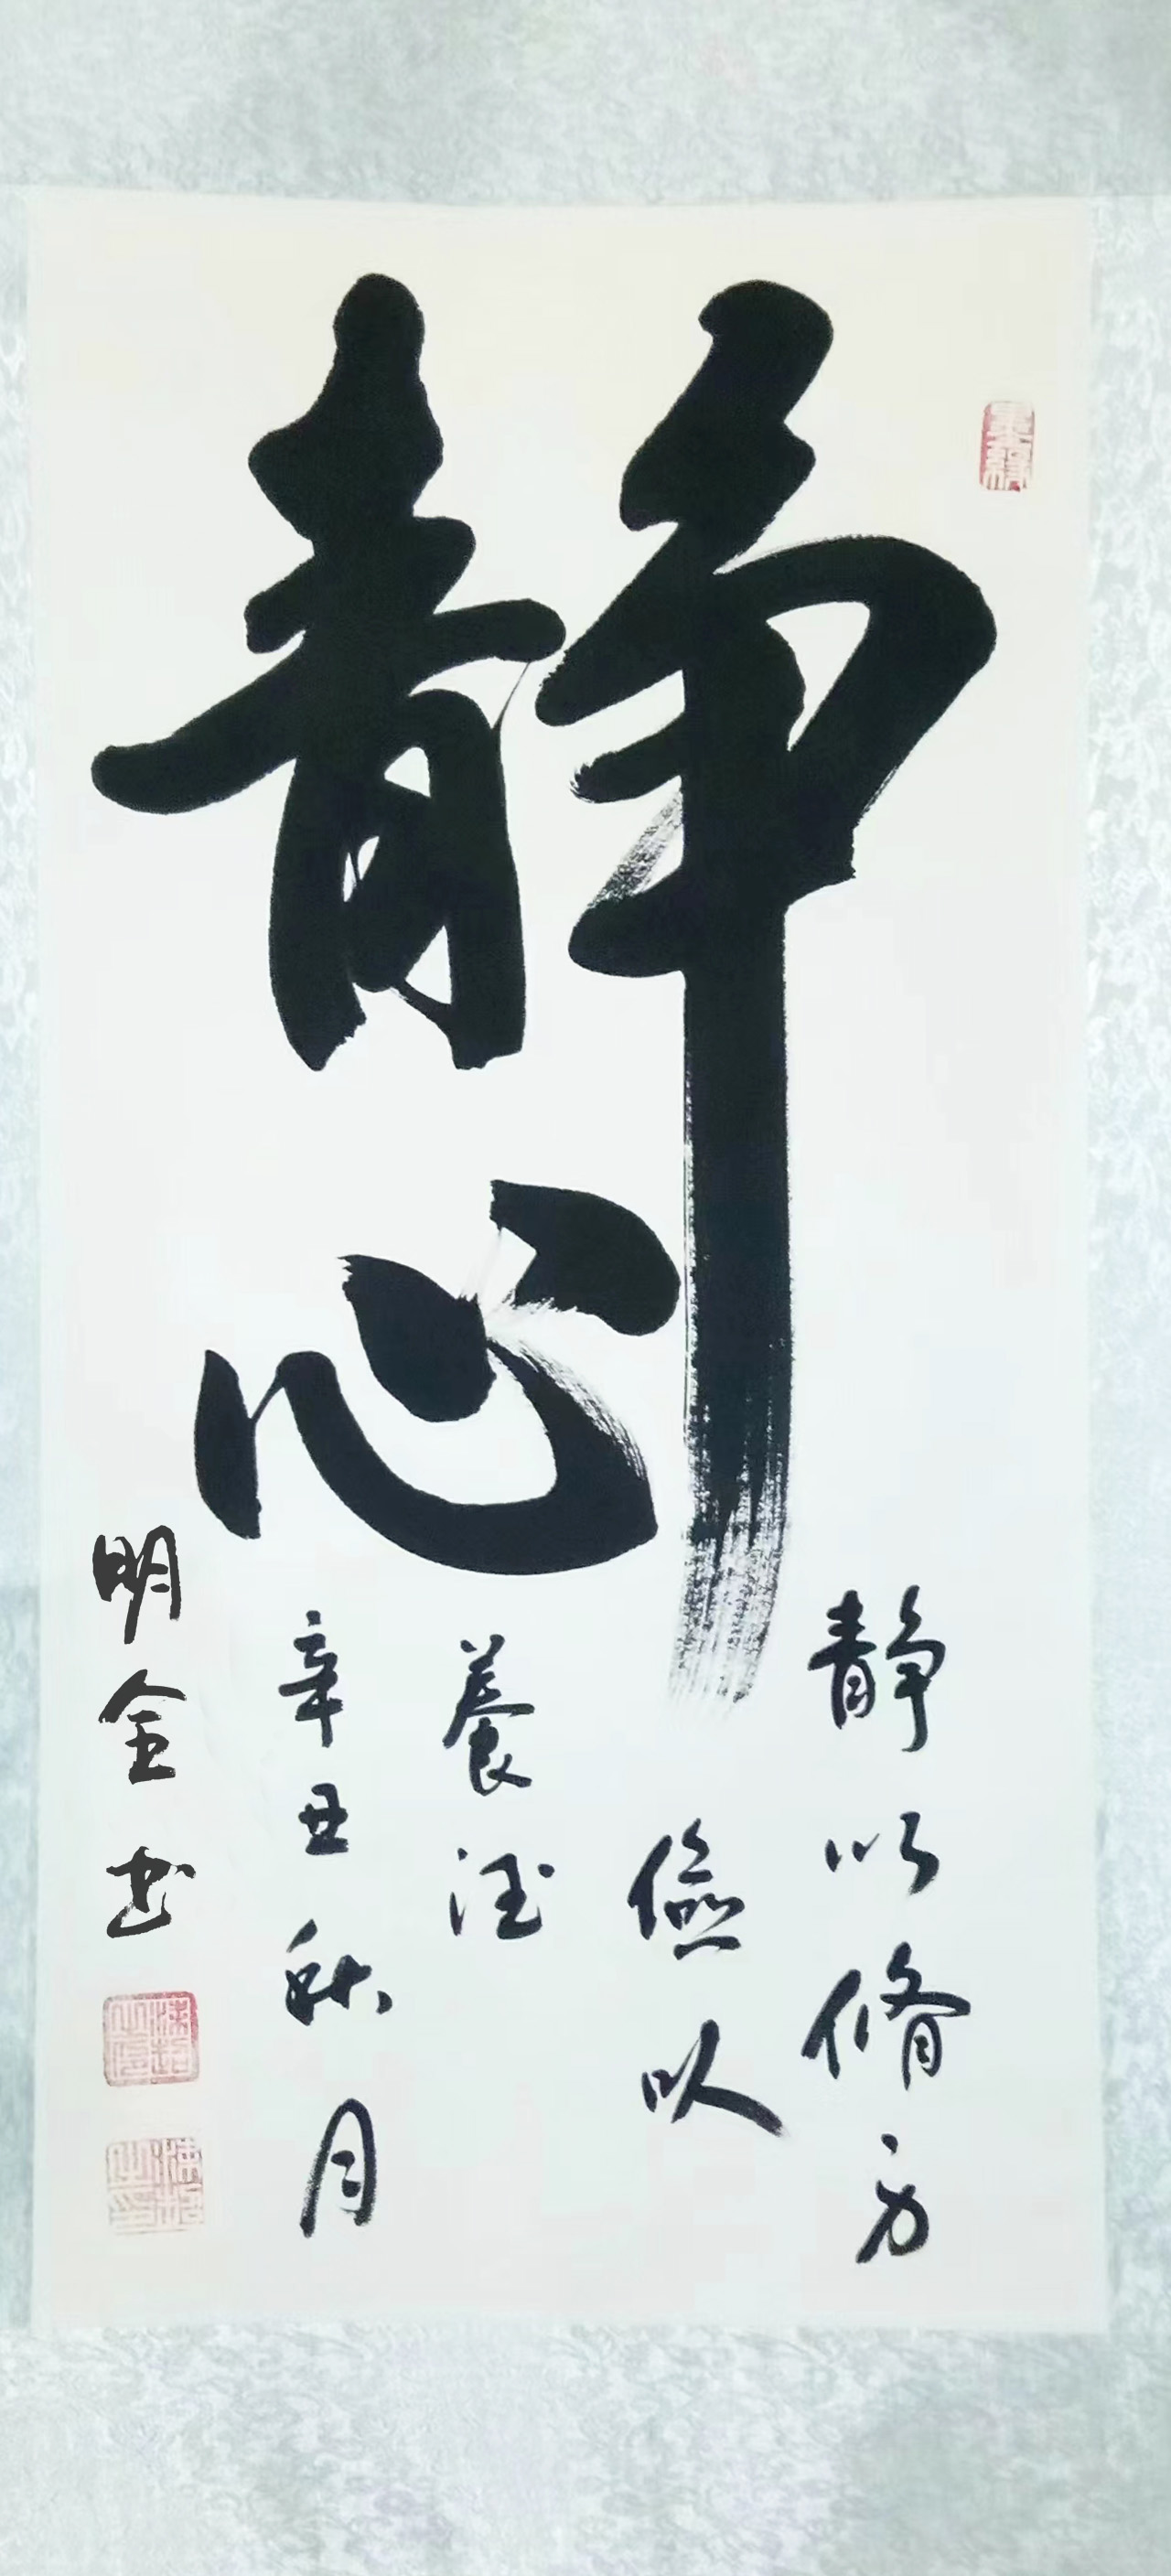 静心
静以修身
儉以
養德
辛丑秋月
明全书